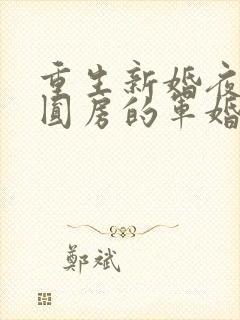 重生新婚夜
圆房的军婚
鄭斌